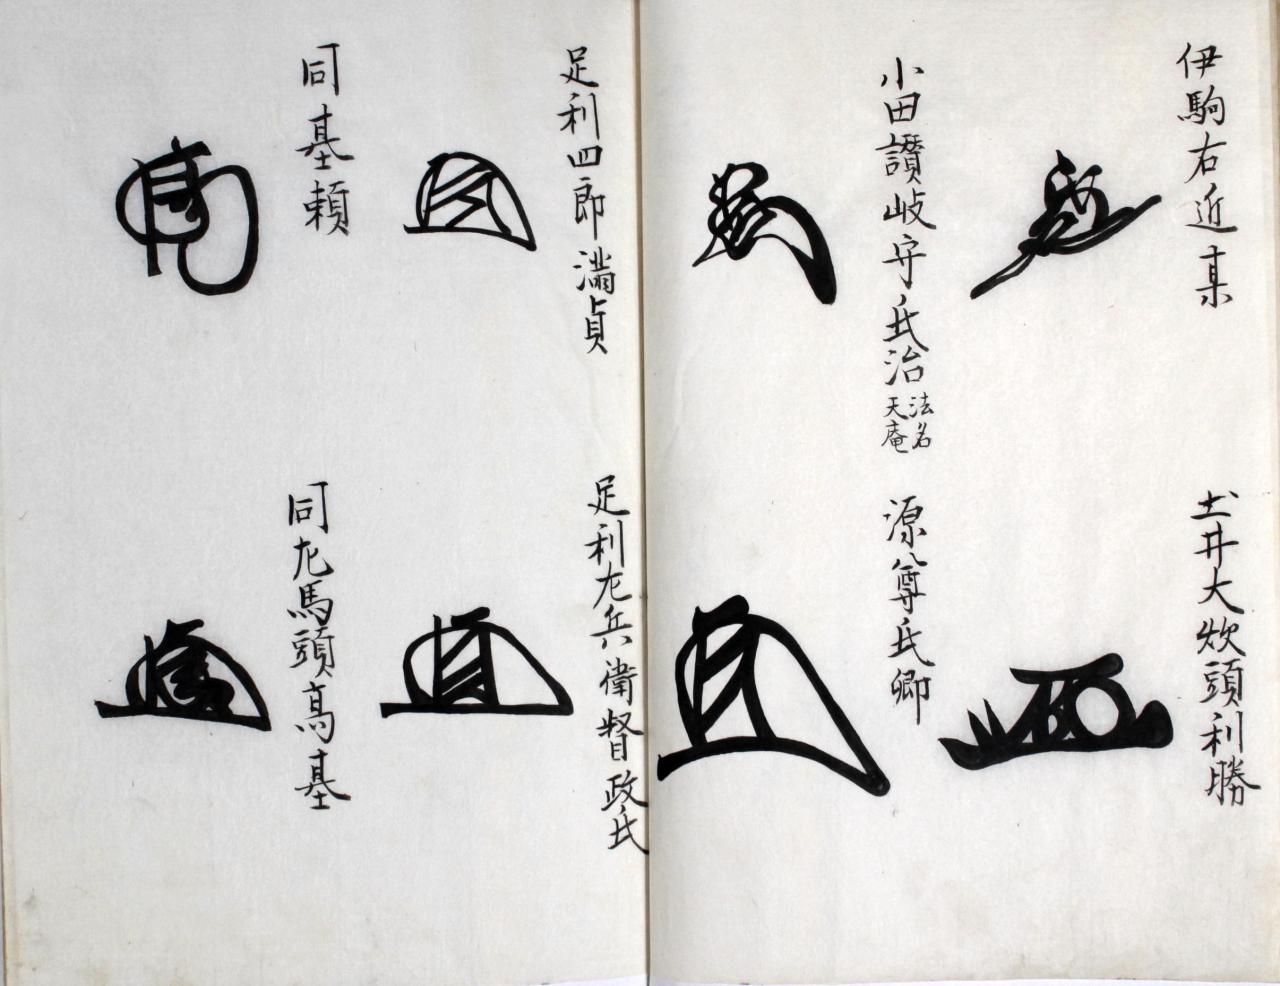 伊駒右近某
土井大炊頭利勝
小田讃岐守氏治 法名天庵
源尊氏卿
足利四郎満貞
足利左兵衛督政氏
同基頼
同左馬頭高基